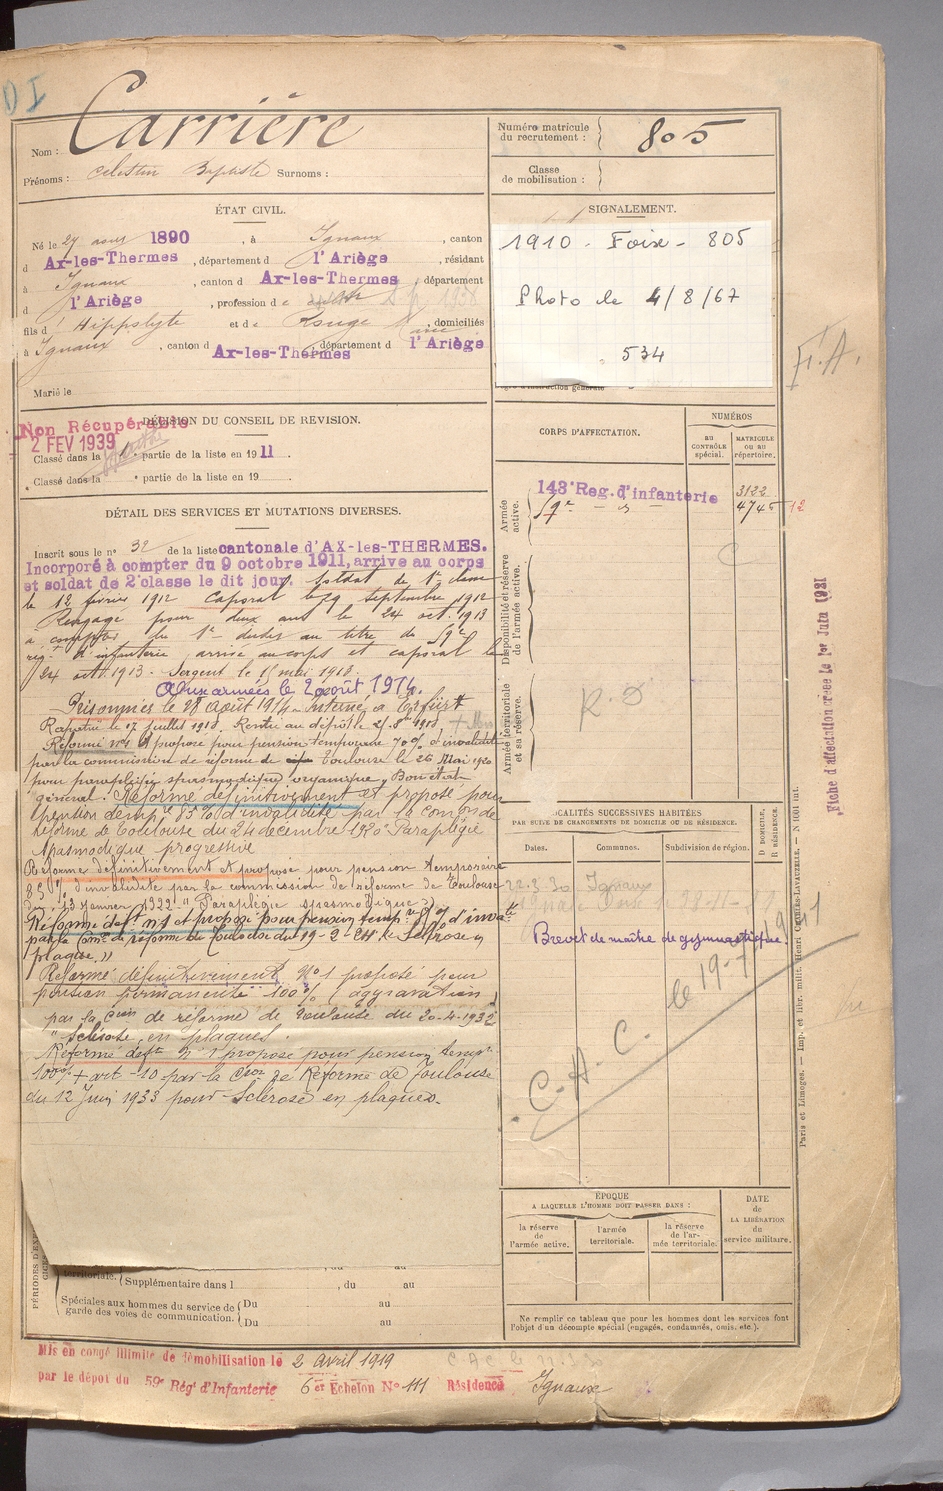 DI
Nom : Carrière
Prénoms : Celestin Baptiste Surnoms :
Numéro matricule du recrutement : 805
Classe de mobilisation :
ÉTAT CIVIL.
Né le 27 aout 1890, à Ignaux, canton
d Ax-les-Thermes, département d l'Ariège, résidant
à Ignaux, canton d Ax-les-Thermes, département
d l'Ariège, profession d e
fils d' Hippolyte et d e Rouge Marie, domiciliés
à Ignaux, canton d Ax-les-Thermes, département d l'Ariège
Marié le
SIGNALEMENT.
1910 - Foix - 805
Photo le 4/8/67
534
F.A.
Non Récupérable
2 FEV 1939
DÉCISION DU CONSEIL DE REVISION.
Classé dans la 1e partie de la liste en 1911.
Classé dans la partie de la liste en 19
DÉTAIL DES SERVICES ET MUTATIONS DIVERSES.
Inscrit sous le n° 32 de la liste cantonale d'AX-les-THERMES.
Incorporé à compter du 9 octobre 1911, arrive au corps
et soldat de 2e classe le dit jour. Soldat de 1e classe
le 12 février 1912 Caporal le 29 septembre 1912
Rengagé pour deux ans le 24 oct. 1913
à compter du 1er dudit au titre du 59e
régt d'infanterie, arrivé au corps et caporal le
24 oct. 1913. Sergent le 15 mai 1918.
Aux armées le 2 août 1914.
Prisonnier le 28 Août 1914 - Interné à Erfürt
Rapatrié le 17 juillet 1918. Rentré au dépôt le
Réformé n°1 et proposé pour pension temporaire 70% d'invalidité
par la commission de réforme de Toulouse le 26 Mai 1920
pour paraplégie spasmodique organique, Bon état
général. Réformé définitivement et proposé pour
pension de temp. 85% d'invalidité par la Comon de
réforme de Toulouse du 24 décembre 1920 "Paraplégie
spasmodique progressive
Réformé définitivement et proposé pour pension temporaire
85% d'invalidité par la commission de réforme de Toulouse
du 13 janvier 1922 "Paraplégie spasmodique"
Réformé deft n°1 et proposé pour pension temp. d'invalté
par la Comon de réforme de Toulouse du 19-2-24 "Sclérose en
plaque"
Réformé définitivement N°1 proposé pour
pension permanente 100% (aggravation)
par la Cion de réforme de Toulouse du 20-4-1932
"Sclérose en plaques.
Réformé deft N°1 proposé pour pension temp.
100% + art-10 par la Cion de Réforme de Toulouse
du 12 Juin 1933 pour Sclérose en plaques.
CORPS D'AFFECTATION.
NUMÉROS
AU CONTRÔLE spécial.
MATRICULE OU AU répertoire.
Armée active.
143e Reg. d'infanterie 3122
59e - d° - 4745 12
Disponibilité et réserve de l'armée active.
Armée territoriale et sa réserve.
R. D
Fiche d'affectation créée le 1er Juin 1931
LOCALITÉS SUCCESSIVES HABITÉES
PAR SUITE DE CHANGEMENTS DE DOMICILE OU DE RÉSIDENCE.
Dates.
Communes.
Subdivision de région.
D DOMICILE,
R RÉSIDENCE.
22.3.30 Ignaux
Brevet de maître de gymnastique.
C.A.C. le 19-7-1941
ÉPOQUE
A LAQUELLE L'HOMME DOIT PASSER DANS :
la réserve de l'armée active.
l'armée territoriale.
la réserve de l'armée territoriale.
DATE de LA LIBÉRATION du service militaire.
Ne remplir ce tableau que pour les hommes dont les services font
l'objet d'un décompte spécial (engagés, condamnés, omis, etc.).
Paris et Limoges. — Imp. et libr. milit. Henri CHARLES-LAVAUZELLE. —
territoriale. Supplémentaire dans l , du au
Spéciales aux hommes du service de garde des voies de communication. Du au
Du au
Mis en congé illimité de démobilisation le 2 avril 1919
par le dépôt du 59e Régt d'Infanterie 6e Echelon N° 111 Résidence Ignaux
C.A.C. le